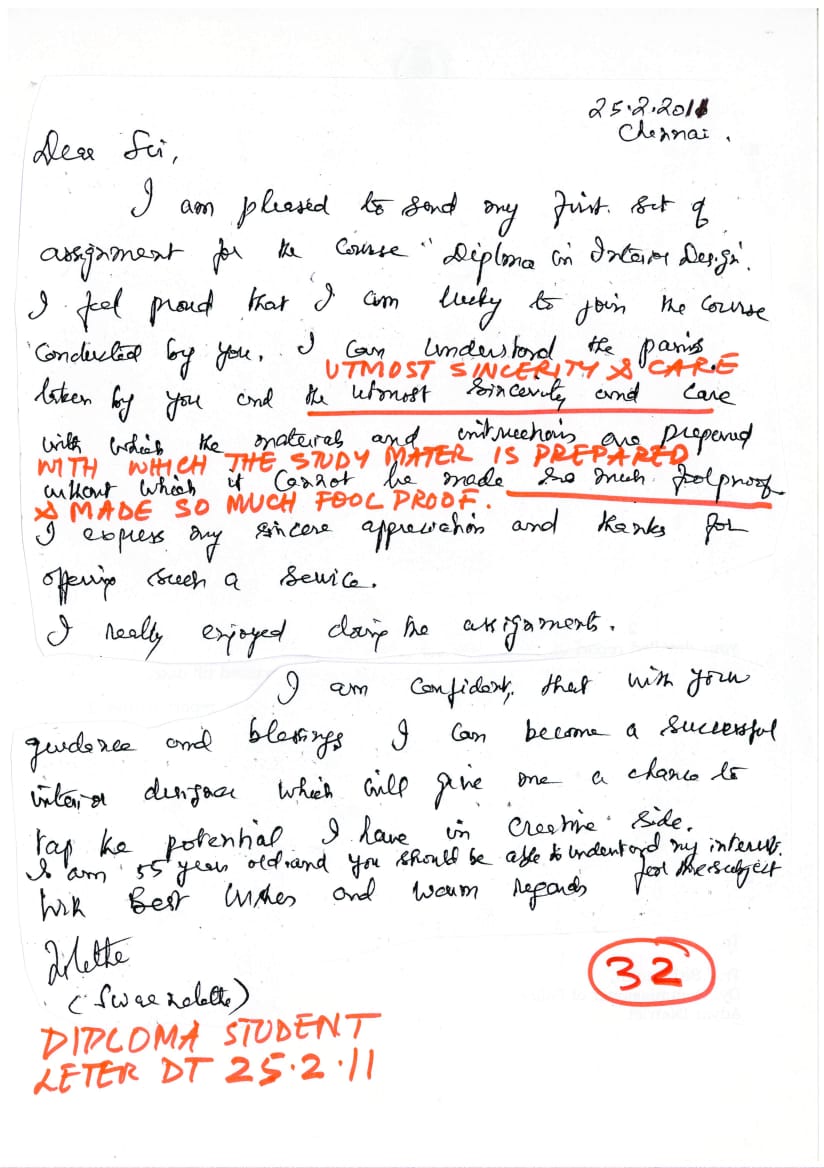 25.2.2011
Chennai.
Dear Sir,
I am pleased to send my first set of
assignment for the course "Diploma in Interior Design".
I feel proud that I am lucky to join the course
conducted by you. I can understand the pains
UTMOST SINCERITY & CARE
taken by you and the utmost sincerity and care
with which the materials and instructions are prepared
WITH WHICH THE STUDY MATER IS PREPARED
without which it cannot be made so much foolproof
& MADE SO MUCH FOOL PROOF.
I express my sincere appreciation and thanks for
offering such a service.
I really enjoyed doing the assignments.
I am confident, that with your
guidance and blessings I can become a successful
interior designer which will give me a chance to
tap the potential I have in creative side.
I am 55 years old and you should be able to understand my interest
for the subject
With Best Wishes and warm regards
32
DIPLOMA STUDENT
LETER DT 25.2.11